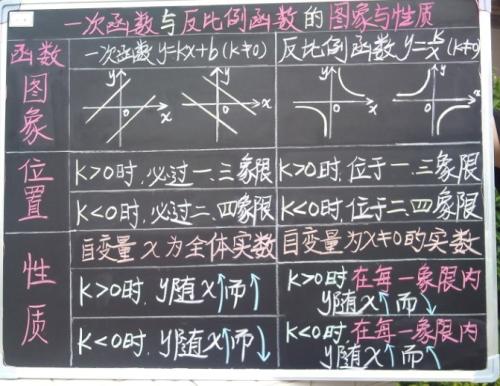 一次函数与反比例函数的图象与性质
函数 一次函数 y=kx+b (k≠0) 反比例函数 y=k/x (k≠0)
图象 y x O y x O y x O y x O
位置 k>0时,必过一、三象限 k>0时,位于一、三象限
k<0时,必过二、四象限 k<0时,位于二、四象限
性质 自变量x为全体实数 自变量为x≠0的实数
k>0时,y随x↑而↑ k>0时在每一象限内
y随x↑而↓
k<0时,y随x↑而↓ k<0时在每一象限内
y随x↑而↑